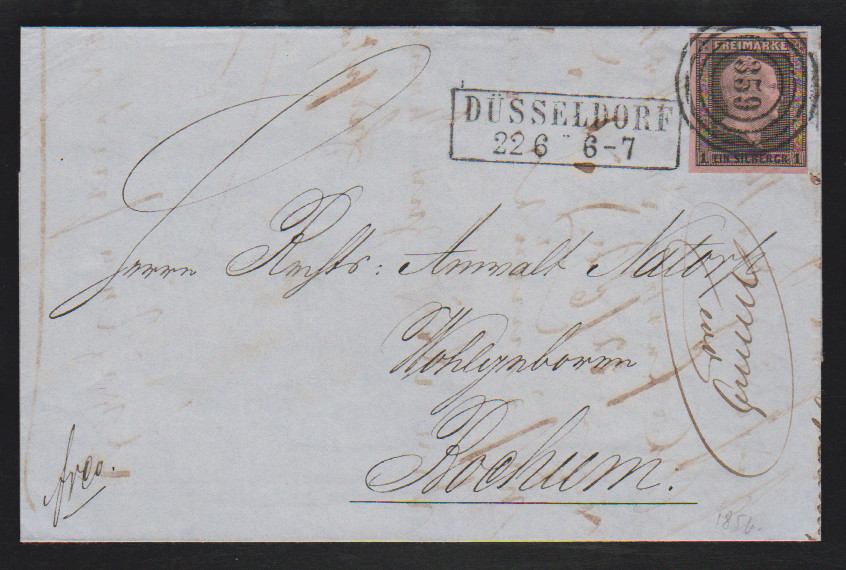 FREIMARKE
359
1 EIN SILBERGR. 1
DÜSSELDORF
22 6 6-7
Herrn Rechts: Anwalt Natorp
Wohlgeboren
Bochum:
frco.
1856.